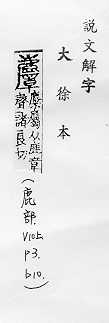 說文解字
大徐本
麞麋屬从鹿章
聲諸良切
(鹿部 V10上. p3. b10.)